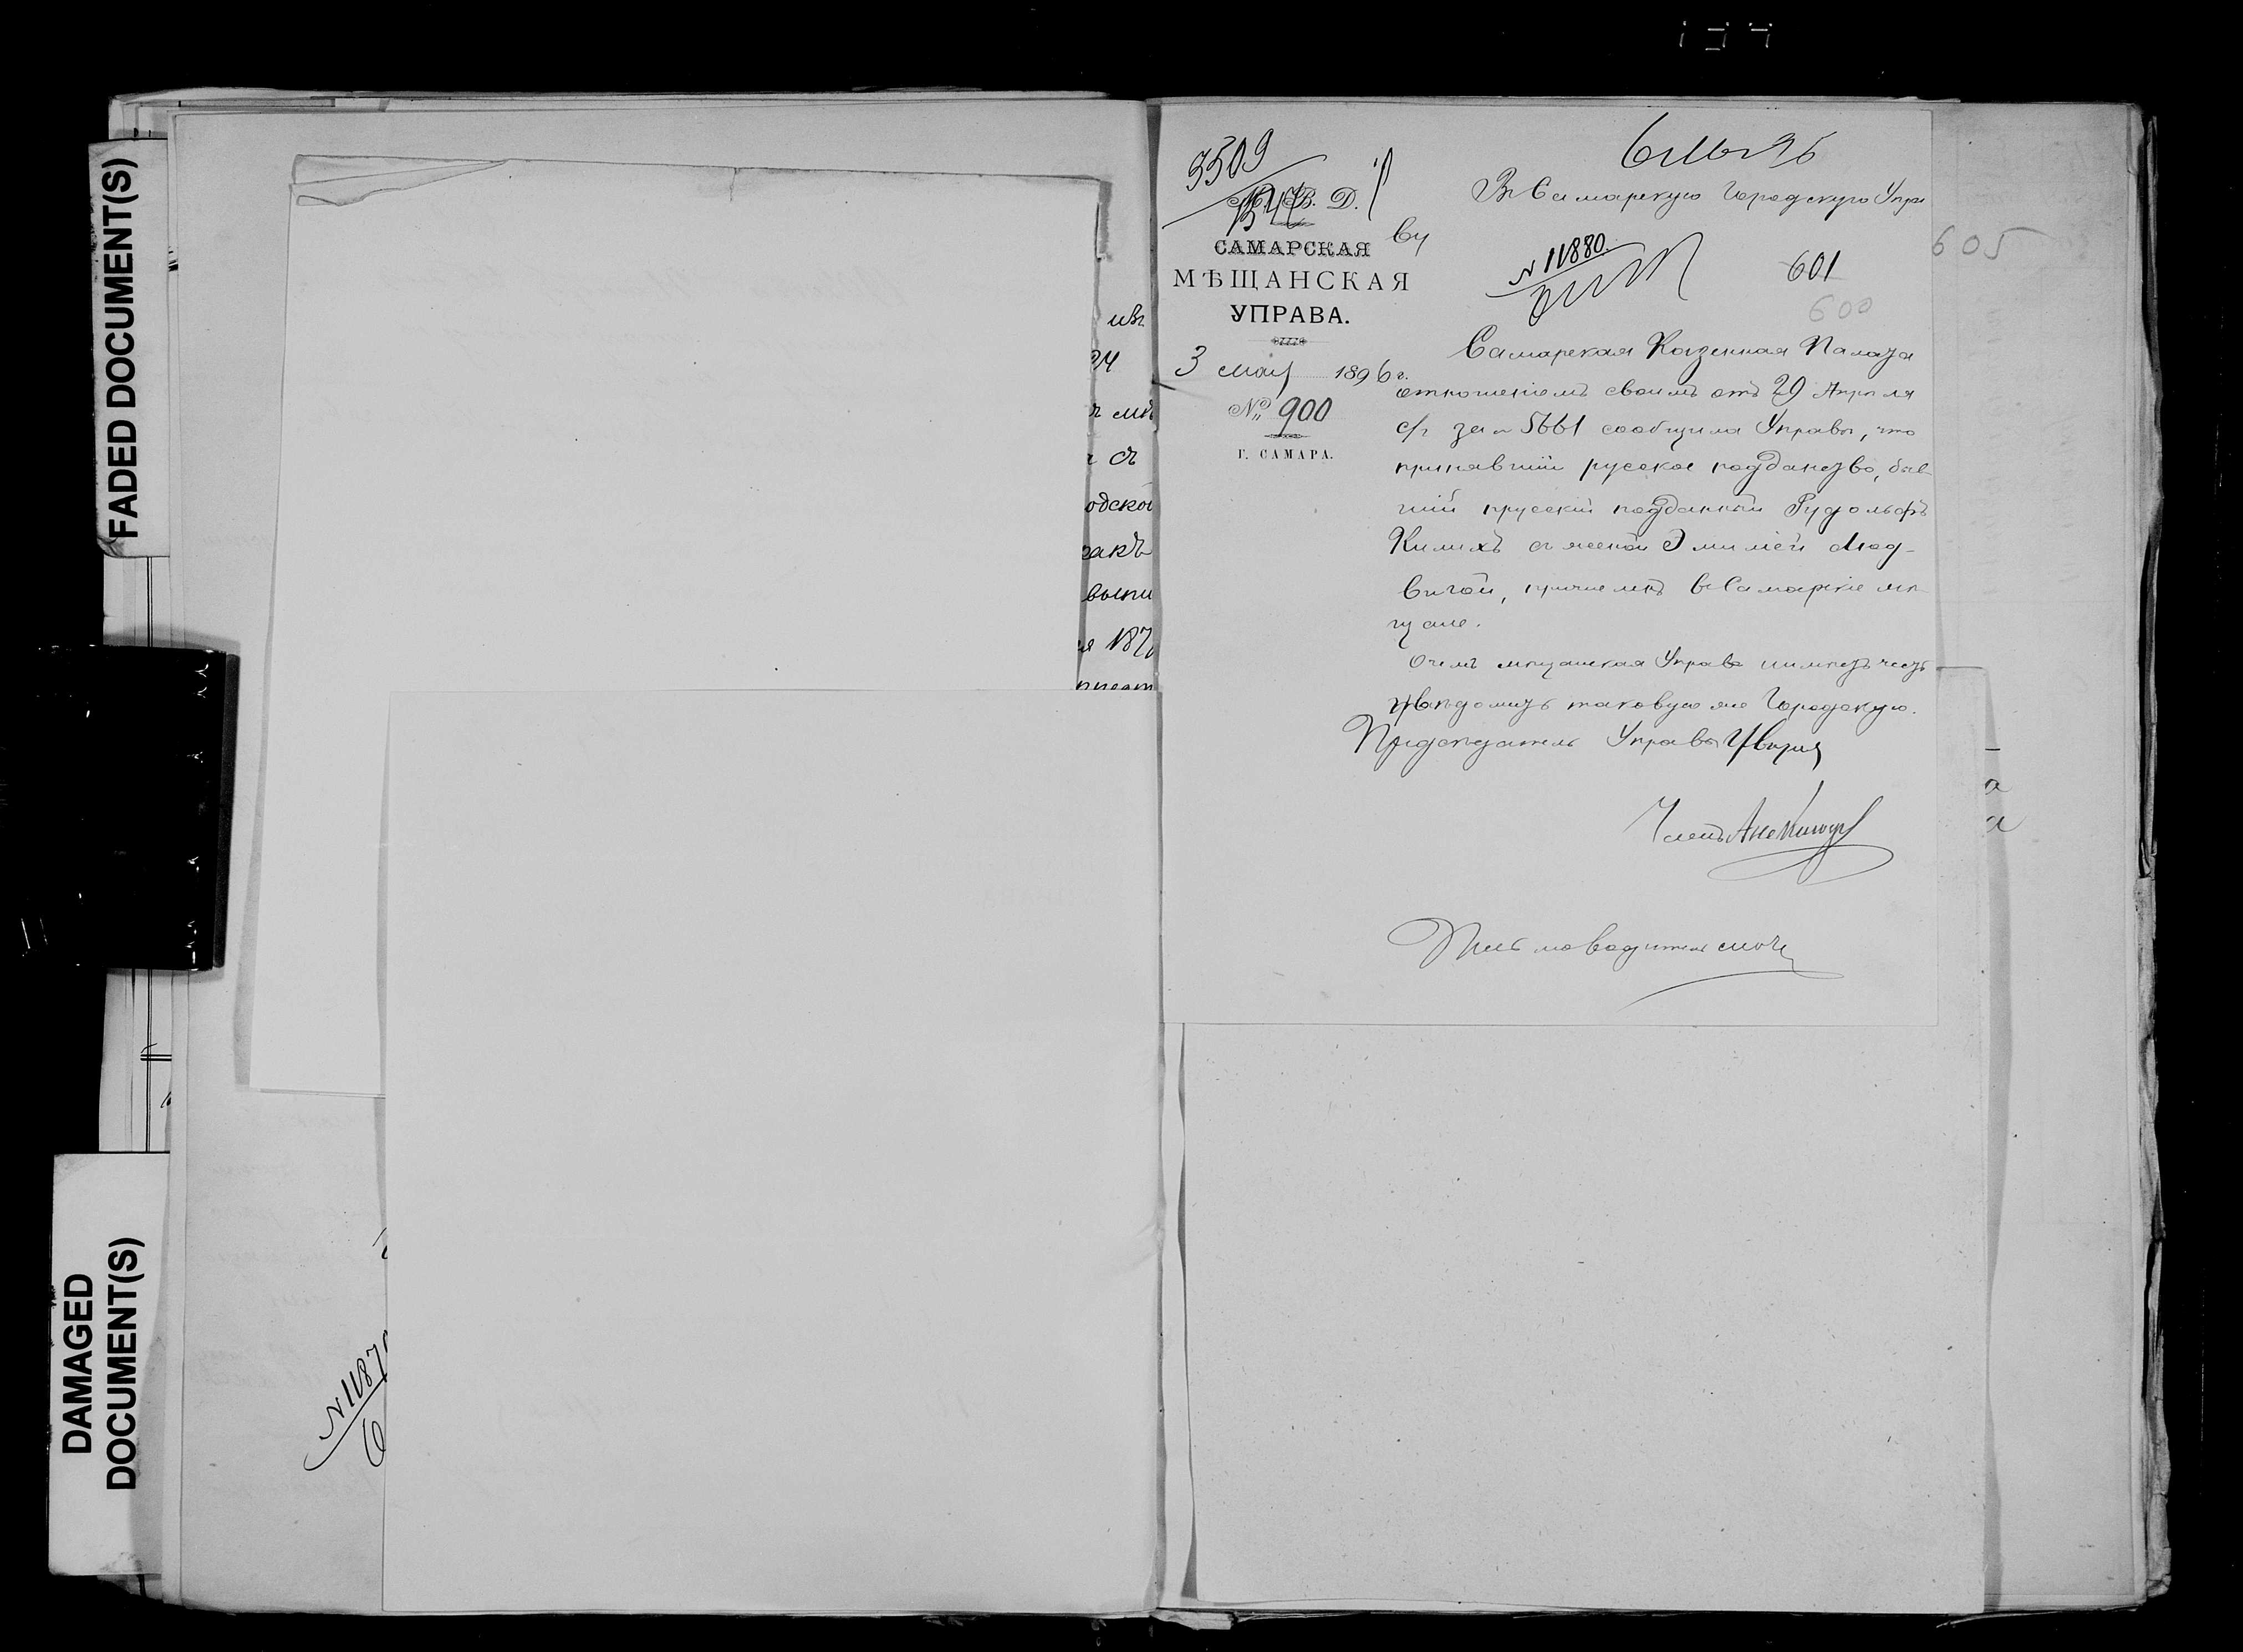 FADED DOCUMENT(S)
DAMAGED
DOCUMENT(S)
одской
1870
N 1187
3509
М. В. Д.
САМАРСКАЯ
МѢЩАНСКАЯ
УПРАВА.
3 мая 1896 г.
№ 900
Г. САМАРА.
Въ Самарскую Городскую Упра
ву
N 11880.
601
600
605
Самарская Казенная Палата
отношенiемъ своимъ отъ 29 Апреля
с/г за № 5661 сообщила Управѣ, что
принявшiй русское подданство, быв-
шiй прусскiй подданный Рудольфъ
Килихъ съ женой Эмилiей Люд-
вигой, причисленъ въ Самарскiе мѣ-
щане.
О чемъ мѣщанская Управа имѣетъ честь
увѣдомить таковую же Городскую.
Предсѣдатель Управы
Членъ
Письмоводитель